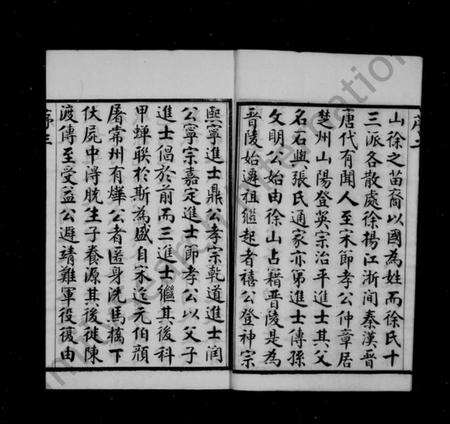 山徐之苗裔以國為姓而徐氏十
三派各散處徐揚江浙間秦漢晉
唐代有聞人至宋節孝公仲章居
楚州山陽登英宗治平進士其父
名石與張氏通家亦第進士傳孫
文明公始由徐山占籍晉陵是為
晉陵始遷祖繼起者禧公登神宗
熙寧進士鼎公孝宗乾道進士閏
公寧宗嘉定進士節公以父子
進士倡於前而三進士繼其後科
甲蟬聯於斯為盛自宋迄元伯顏
屠常州有燁公者匿身洗馬橋下
伏屍中得脫生子養源其後徙陳
渡傳至受益公避靖難軍役復由
序二
序三